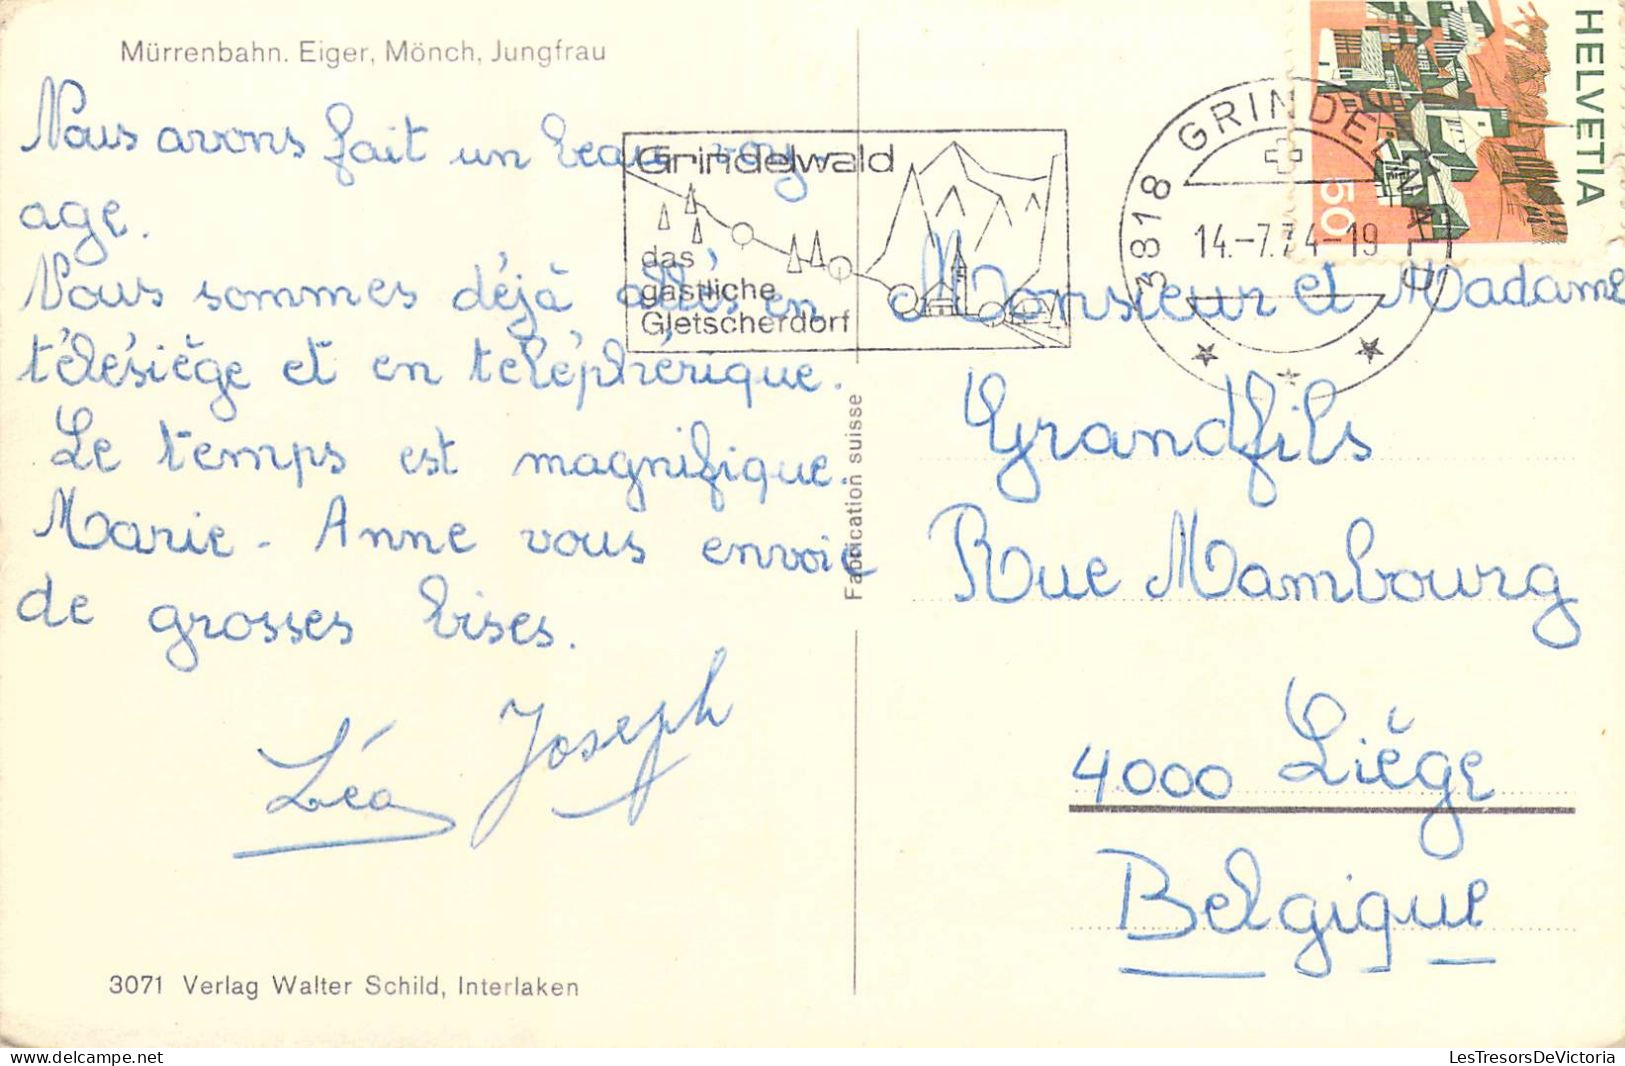 Mürrenbahn. Eiger, Mönch, Jungfrau
Nous avons fait un beau voy-
age.
Nous sommes déjà allés en
télésiège et en téléphérique.
Le temps est magnifique.
Marie-Anne vous envoie
de grosses bises.
Léa Joseph
3071 Verlag Walter Schild, Interlaken
Fabrication suisse
Grindelwald
das
gastliche
Gletscherdorf
3818 GRINDELWALD
14.-7.74-19
HELVETIA
50
Monsieur et Madame
Grandfils
Rue Mambourg
4000 Liège
Belgique
www.delcampe.net
LesTresorsDeVictoria